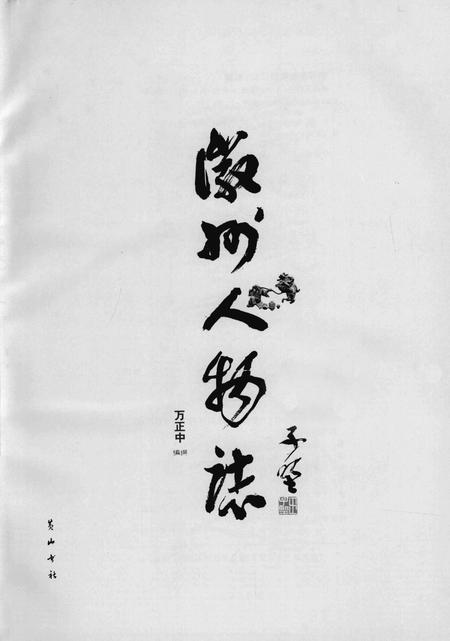 徽州人物誌
万正中
编撰
黄山书社